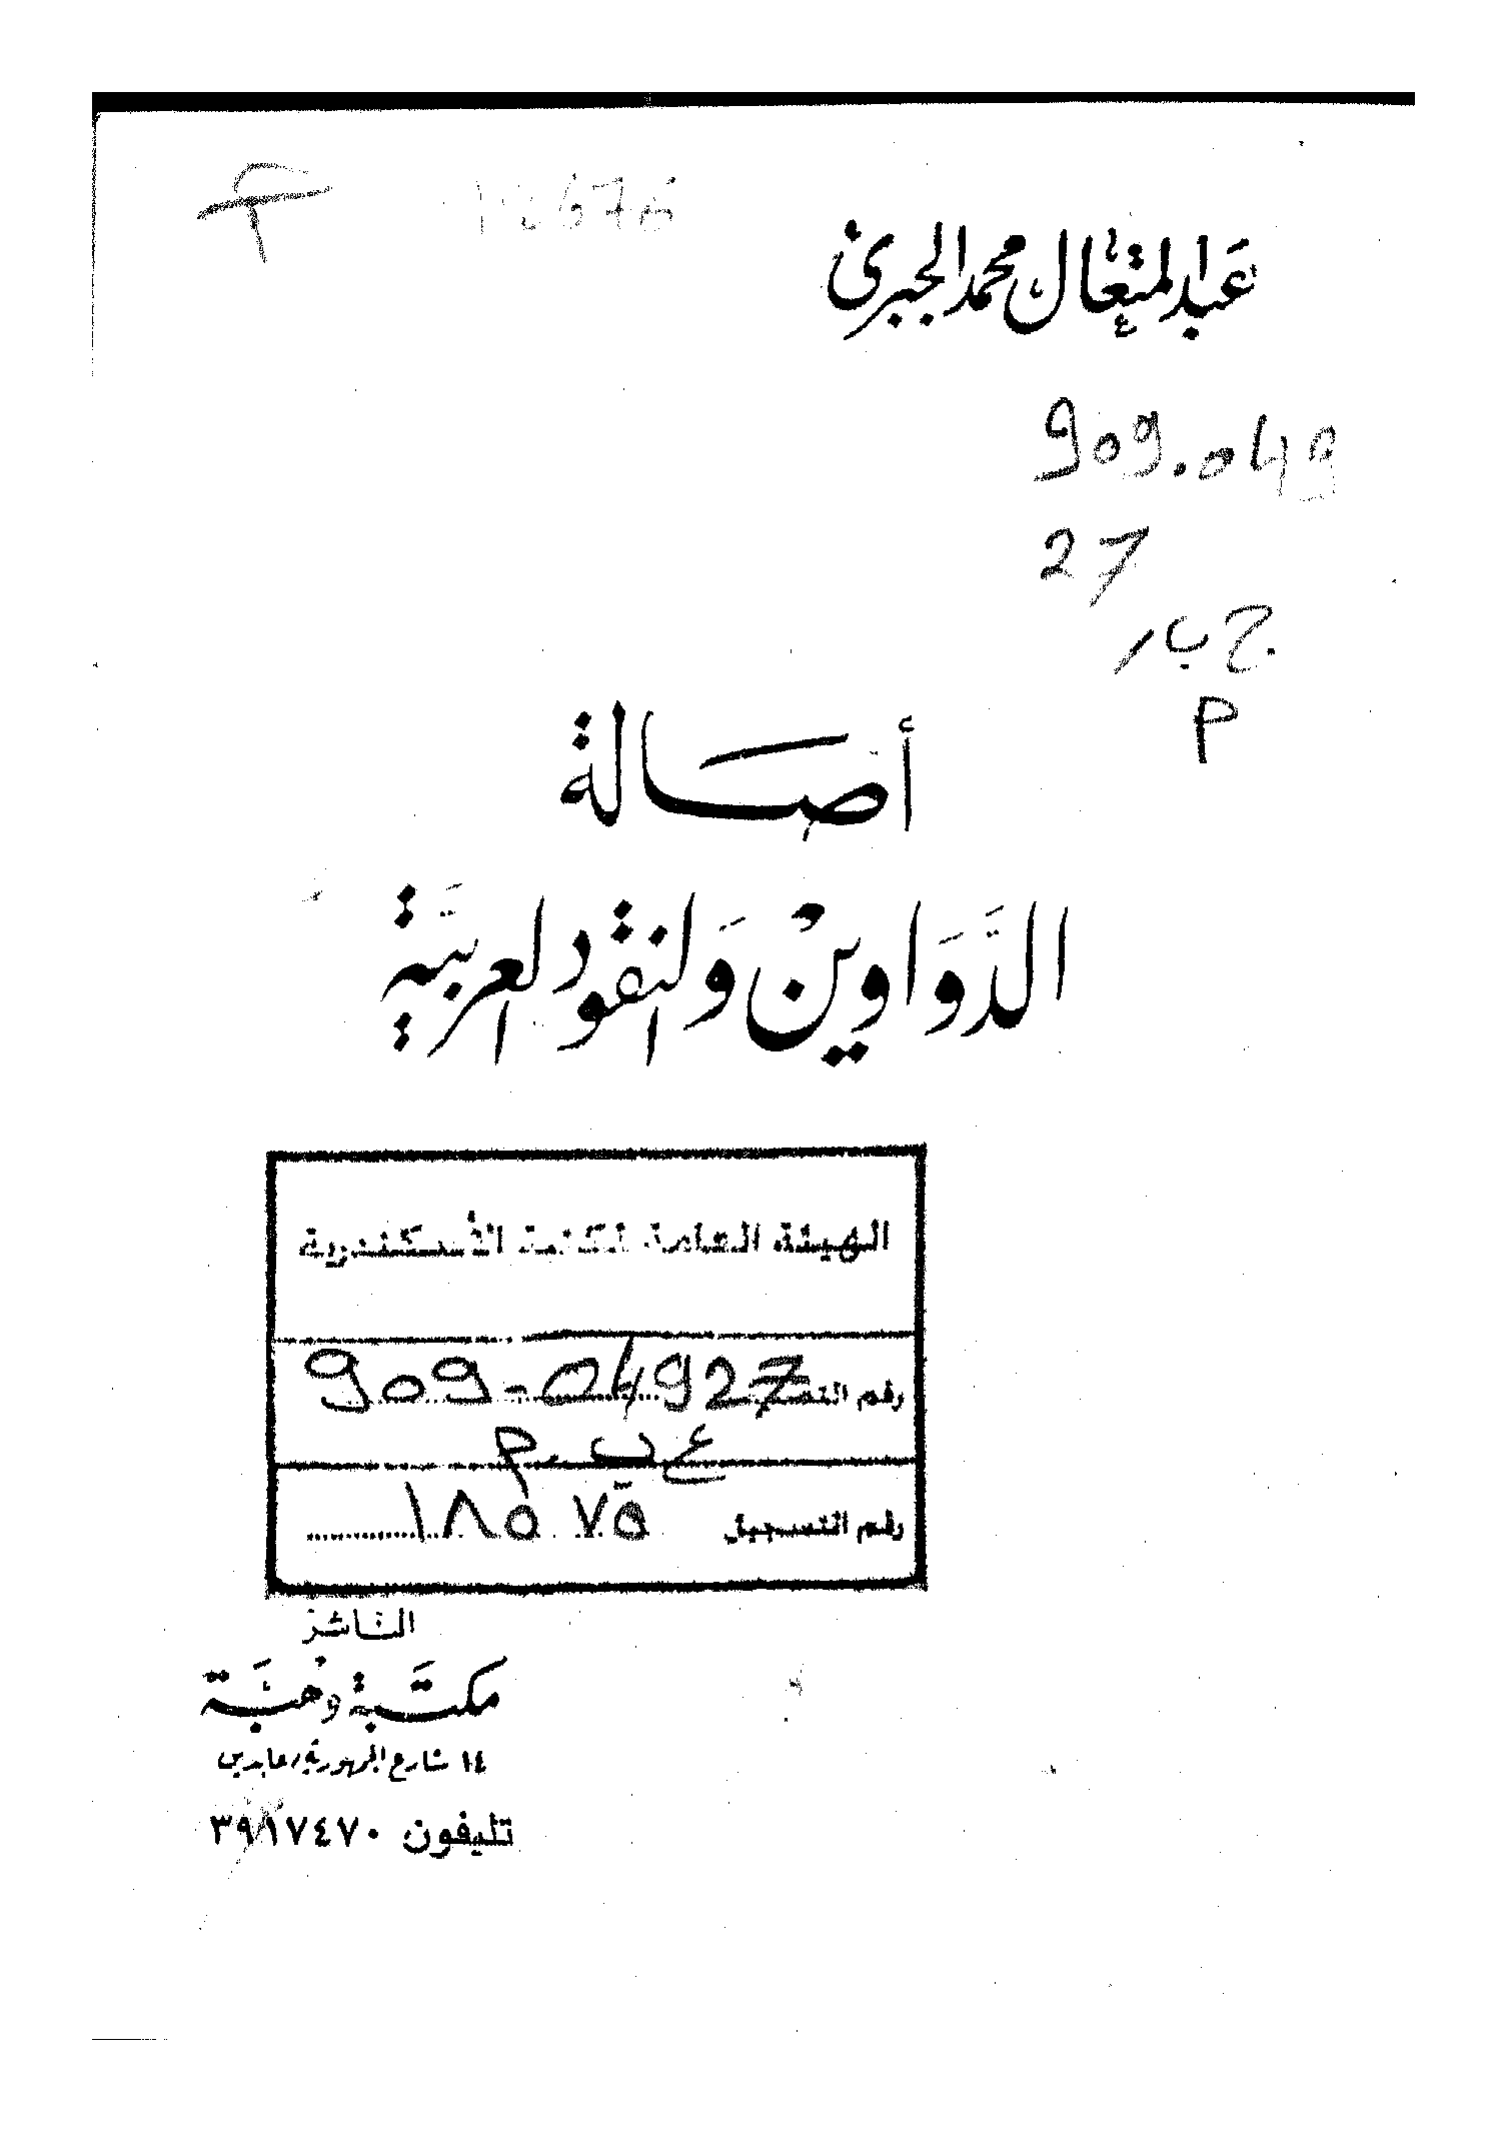 عبد المتعال محمد الجبرى
909.049
27
ج ب ر
أصالة
الدَّوَاوين وَالنقود العربيَّة
الهيئة العامة لمكتبة الأسكندرية
رقم التصنيف 909.04927
رقم التسجيل ١٨٥٧٥
الناشر
مكتَبة وهبَة
١٤ شارع الجمهورية، عابدين
تليفون ٣٩١٧٤٧٠